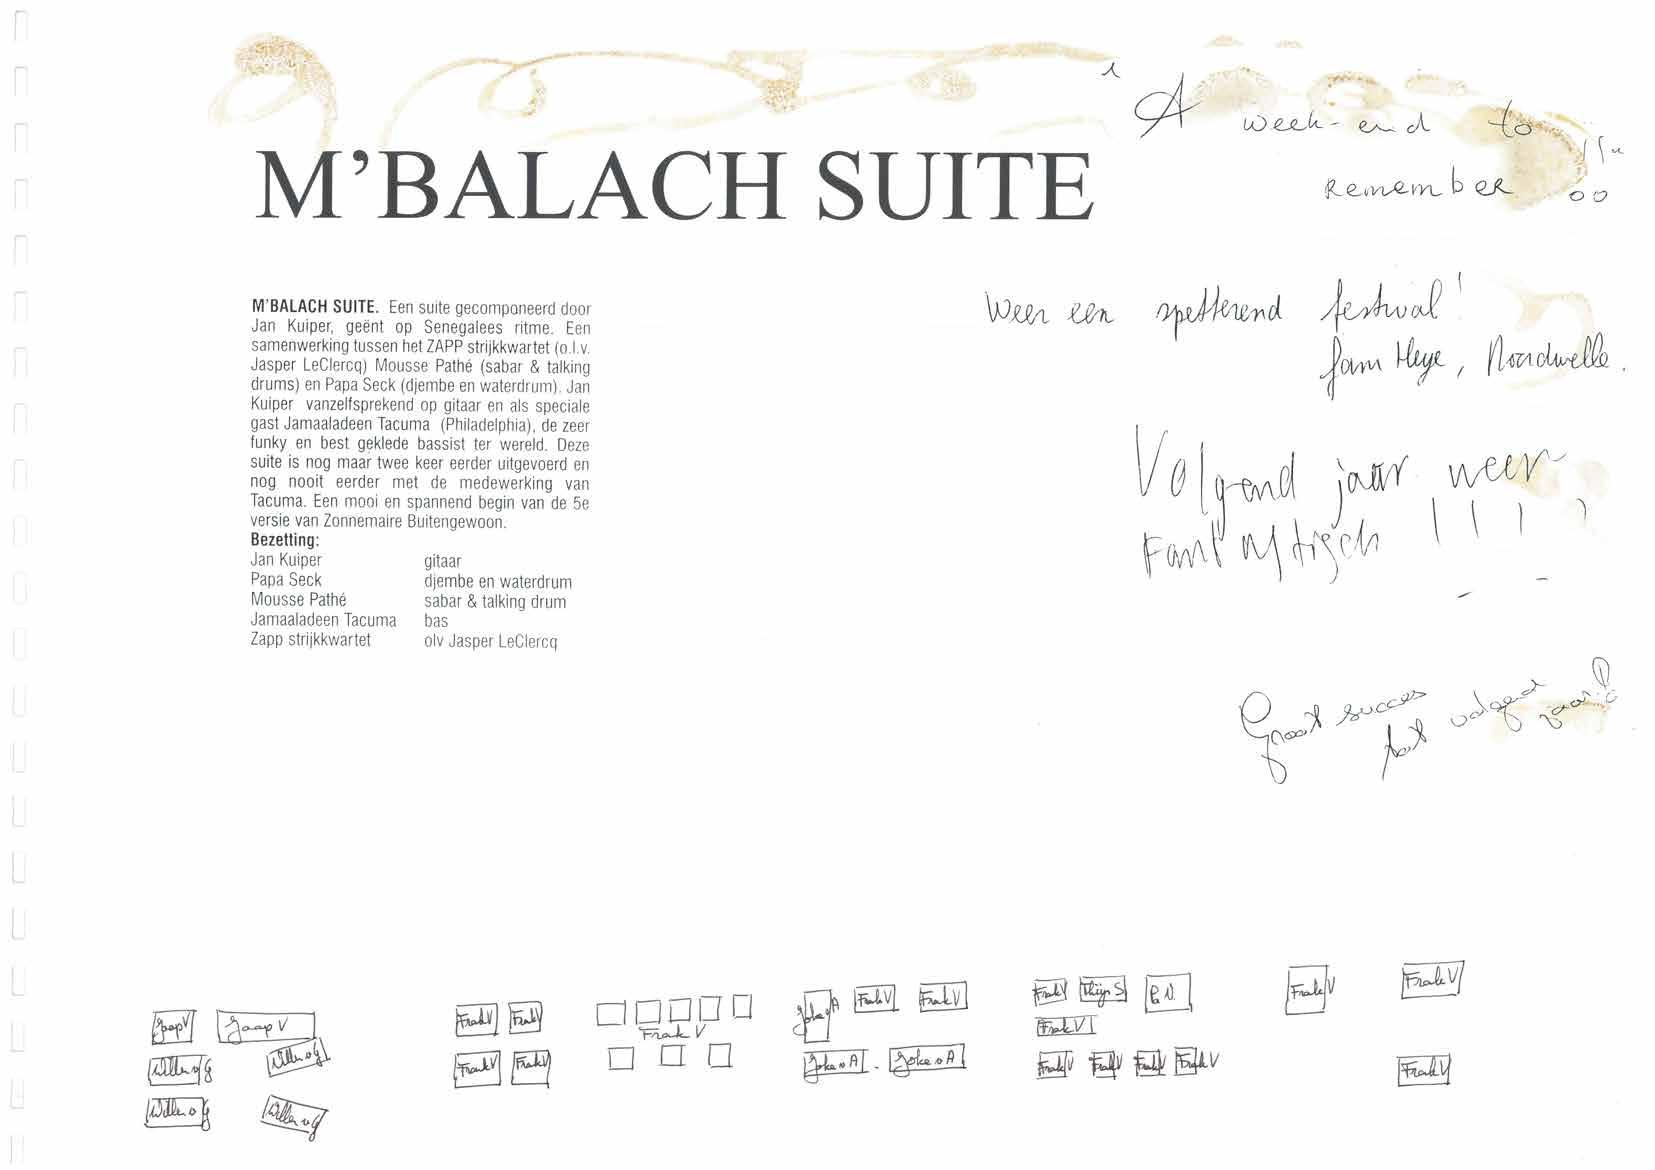 M’BALACH SUITE
A week-end to
remember !!
M’BALACH SUITE. Een suite gecomponeerd door
Jan Kuiper, geënt op Senegalees ritme. Een
samenwerking tussen het ZAPP strijkkwartet (o.l.v.
Jasper LeClercq) Mousse Pathé (sabar & talking
drums) en Papa Seck (djembe en waterdrum). Jan
Kuiper vanzelfsprekend op gitaar en als speciale
gast Jamaaladeen Tacuma (Philadelphia), de zeer
funky en best geklede bassist ter wereld. Deze
suite is nog maar twee keer eerder uitgevoerd en
nog nooit eerder met de medewerking van
Tacuma. Een mooi en spannend begin van de 5e
versie van Zonnemaire Buitengewoon.
Bezetting:
Jan Kuiper gitaar
Papa Seck djembe en waterdrum
Mousse Pathé sabar & talking drum
Jamaaladeen Tacuma bas
Zapp strijkkwartet olv Jasper LeClercq
Weer een spetterend festival!
fam Heye, Noordwelle.
Volgend jaar weer
Fantastisch !!!!
Groot succes
tot volgend jaar!
Jaap V Jaap V
Willem v G Willem v G
Willem v G Willem v G
Frank V Frank V
Frank V Frank V
Frank V
Joke v A Frank V Frank V
Joke v A - Joke v A
Frank V Thijs S P. N.
Frank V
Frank V Frank V Frank V Frank V
Frank V
Frank V
Frank V